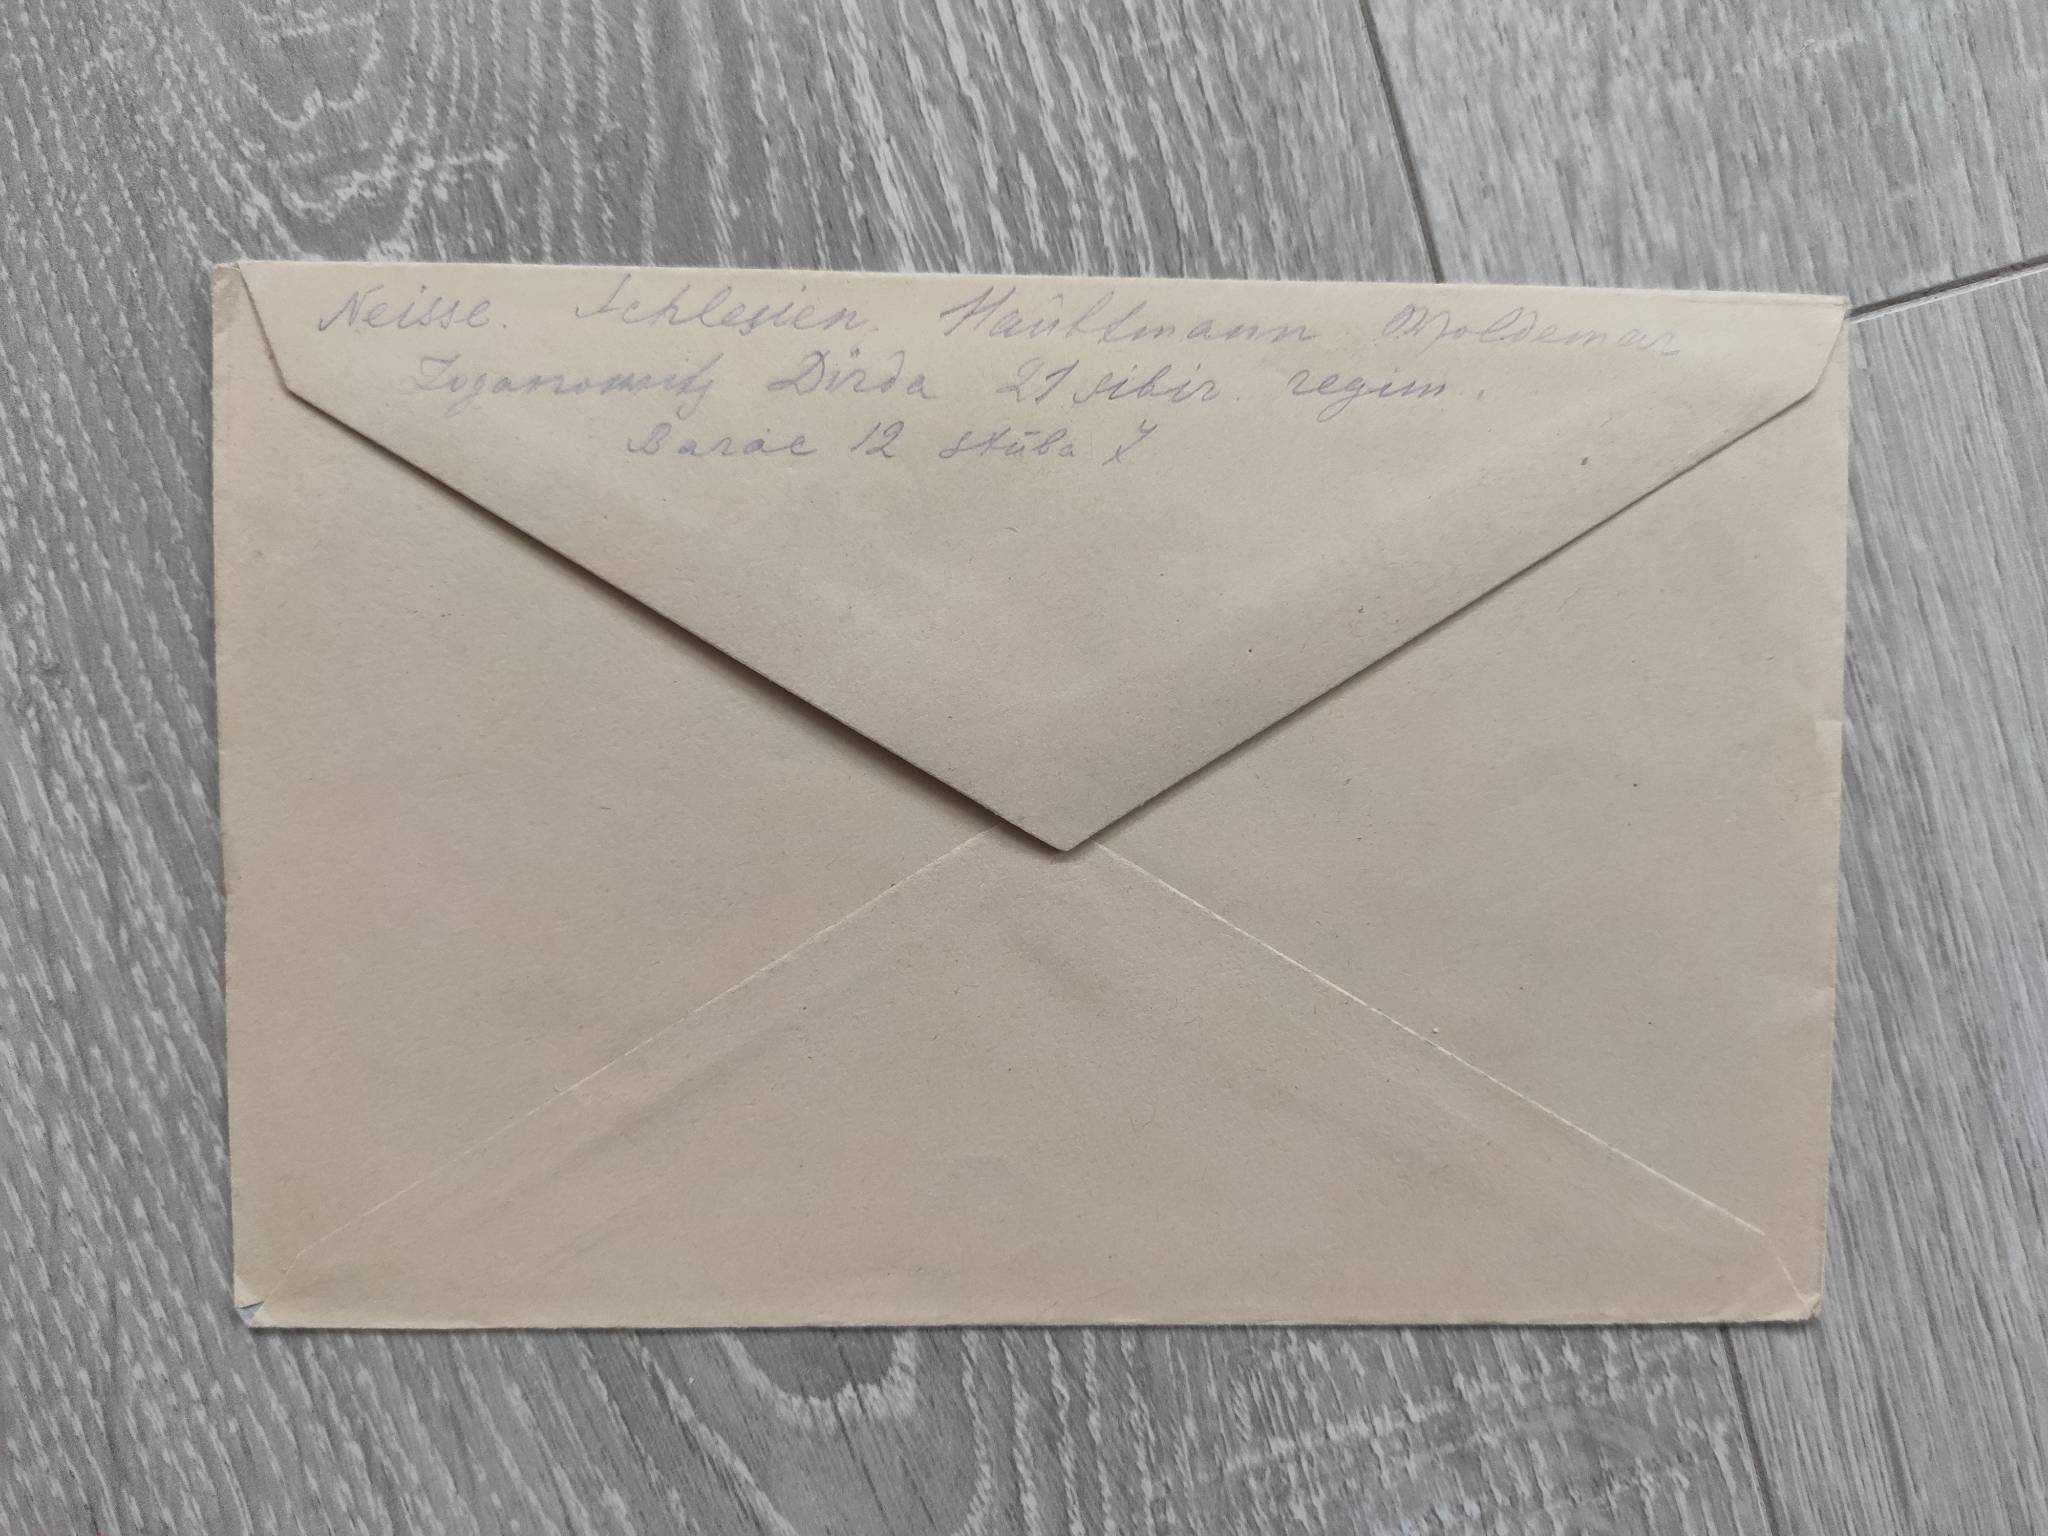 Neisse. Schlesien. Haûbtmann Woldemar
Dirda 21 sibir. regim.
Barac 12 stûba